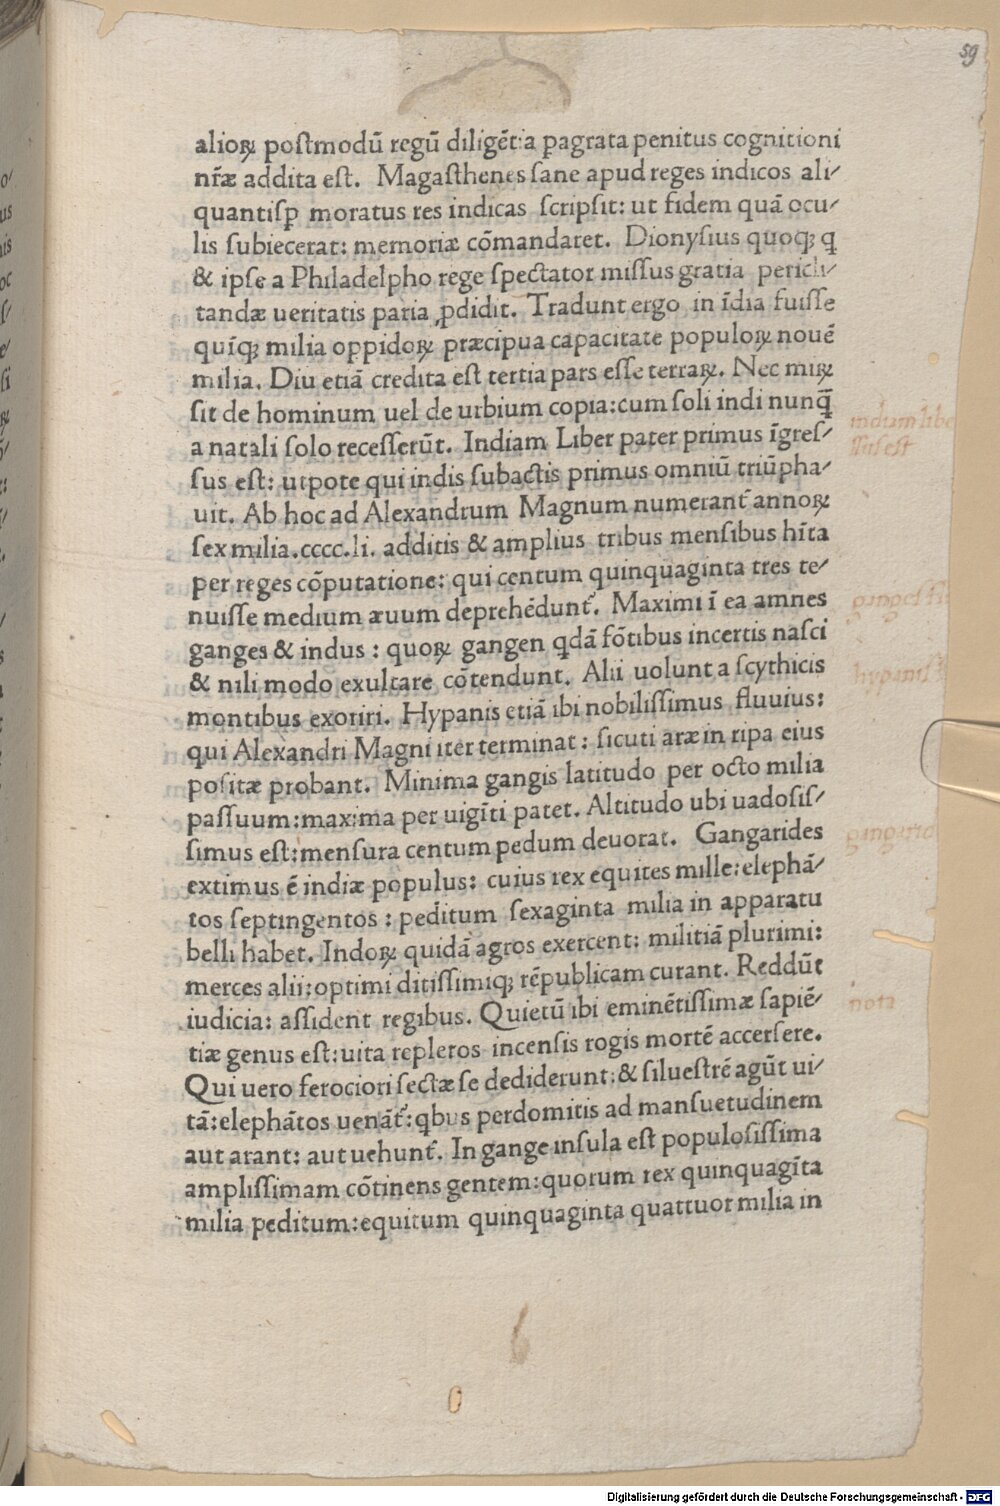 59
alioꝝ poſtmodū regū diligētia pagrata penitus cognitioni
nr̄æ addita eſt. Magaſthenes ſane apud reges indicos ali⸗
quantiſp moratus res indicas ſcripſit: ut fidem quā ocu⸗
lis ſubiecerat: memoriæ cōmandaret. Dionyſius quoqꝫ q
& ipſe a Philadelpho rege ſpectator miſſus gratia pericli⸗
tandæ ueritatis paria ꝓdidit. Tradunt ergo in īdia fuiſſe
quīqꝫ milia oppidoꝝ præcipua capacitate populoꝝ nouē
milia. Diu etiā credita eſt tertia pars eſſe terraꝝ. Nec miꝝ
ſit de hominum uel de urbium copia: cum ſoli indi nunq̄
a natali ſolo receſſerūt. Indiam Liber pater primus īgreſ⸗
ſus eſt: utpote qui indis ſubactis primus omniū triūpha⸗
uit. Ab hoc ad Alexandrum Magnum numerant᷑ annoꝝ
ſex milia.cccc.li. additis & amplius tribus menſibus hīta
per reges cōputatione: qui centum quinquaginta tres te⸗
nuiſſe medium æuum deprehēdunt᷑. Maximi ī ea amnes
ganges & indus: quoꝝ gangen qdā fōtibus incertis naſci
& nili modo exultare cōtendunt. Alii uolunt a ſcythicis
montibus exoriri. Hypanis etiā ibi nobiliſſimus fluuius:
qui Alexandri Magni iter terminat: ſicuti aræ in ripa eius
poſitæ probant. Minima gangis latitudo per octo milia
paſſuum: maxima per uigīti patet. Altitudo ubi uadoſiſ⸗
ſimus eſt: menſura centum pedum deuorat. Gangarides
extimus ē indiæ populus: cuius rex equites mille: elephā⸗
tos ſeptingentos: peditum ſexaginta milia in apparatu
belli habet. Indoꝝ quidā agros exercent: militiā plurimi:
merces alii: optimi ditiſſimiqꝫ rēpublicam curant. Reddūt
iudicia: aſſident regibus. Quietū ibi eminētiſſimæ ſapiē⸗
tiæ genus eſt: uita repleros incenſis rogis mortē accerſere.
Qui uero ferociori ſectæ ſe dediderunt: & ſilueſtrē agūt ui⸗
tā: elephātos uenāt᷑: qbus perdomitis ad manſuetudinem
aut arant: aut uehunt᷑. In gange inſula eſt populoſiſſima
ampliſſimam cōtinens gentem: quorum rex quinquagīta
milia peditum: equitum quinquaginta quattuor milia in
nota
Digitalisierung gefördert durch die Deutsche Forschungsgemeinschaft - DFG